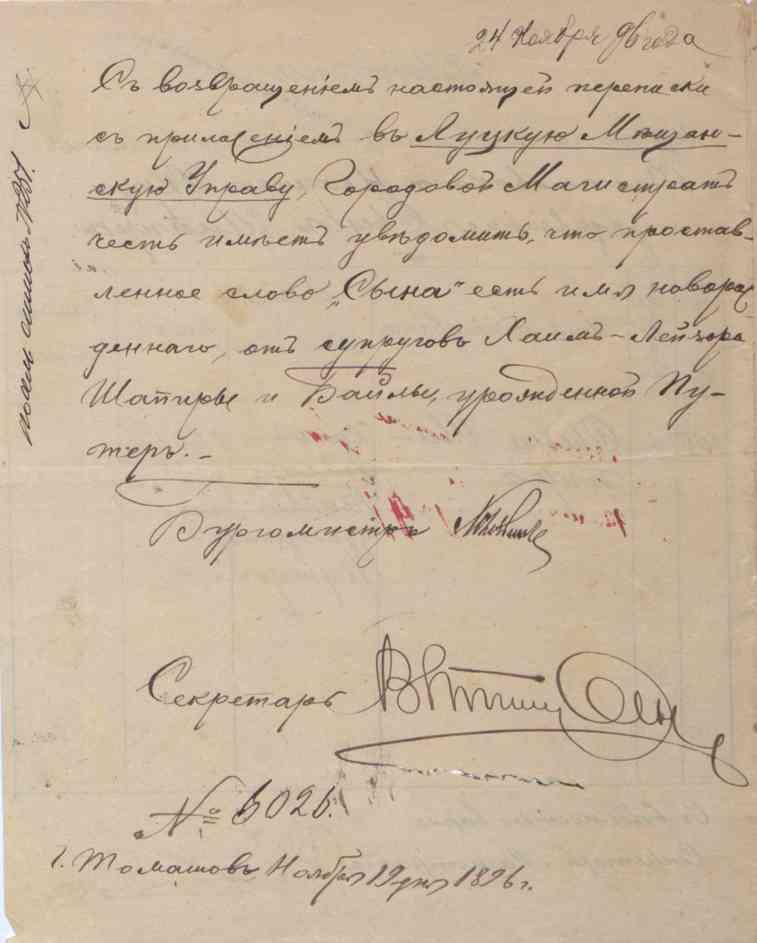 24 Ноября 96 года
Съ возвращеніемъ настоящей переписки
съ приложеніемъ въ Луцкую Мѣщан-
скую Управу, Городовой Магистратъ
честь имѣетъ увѣдомить, что простав-
ленное слово „Сына“ есть имя новорож-
деннаго, отъ супруговъ Хаимъ-Лейзора
Шапиры и Байлы, урожденной Пу-
теръ.-
Бургомистръ
Секретарь
№ 6026.
г. Томашовъ Ноября 19 дня 1896 г.